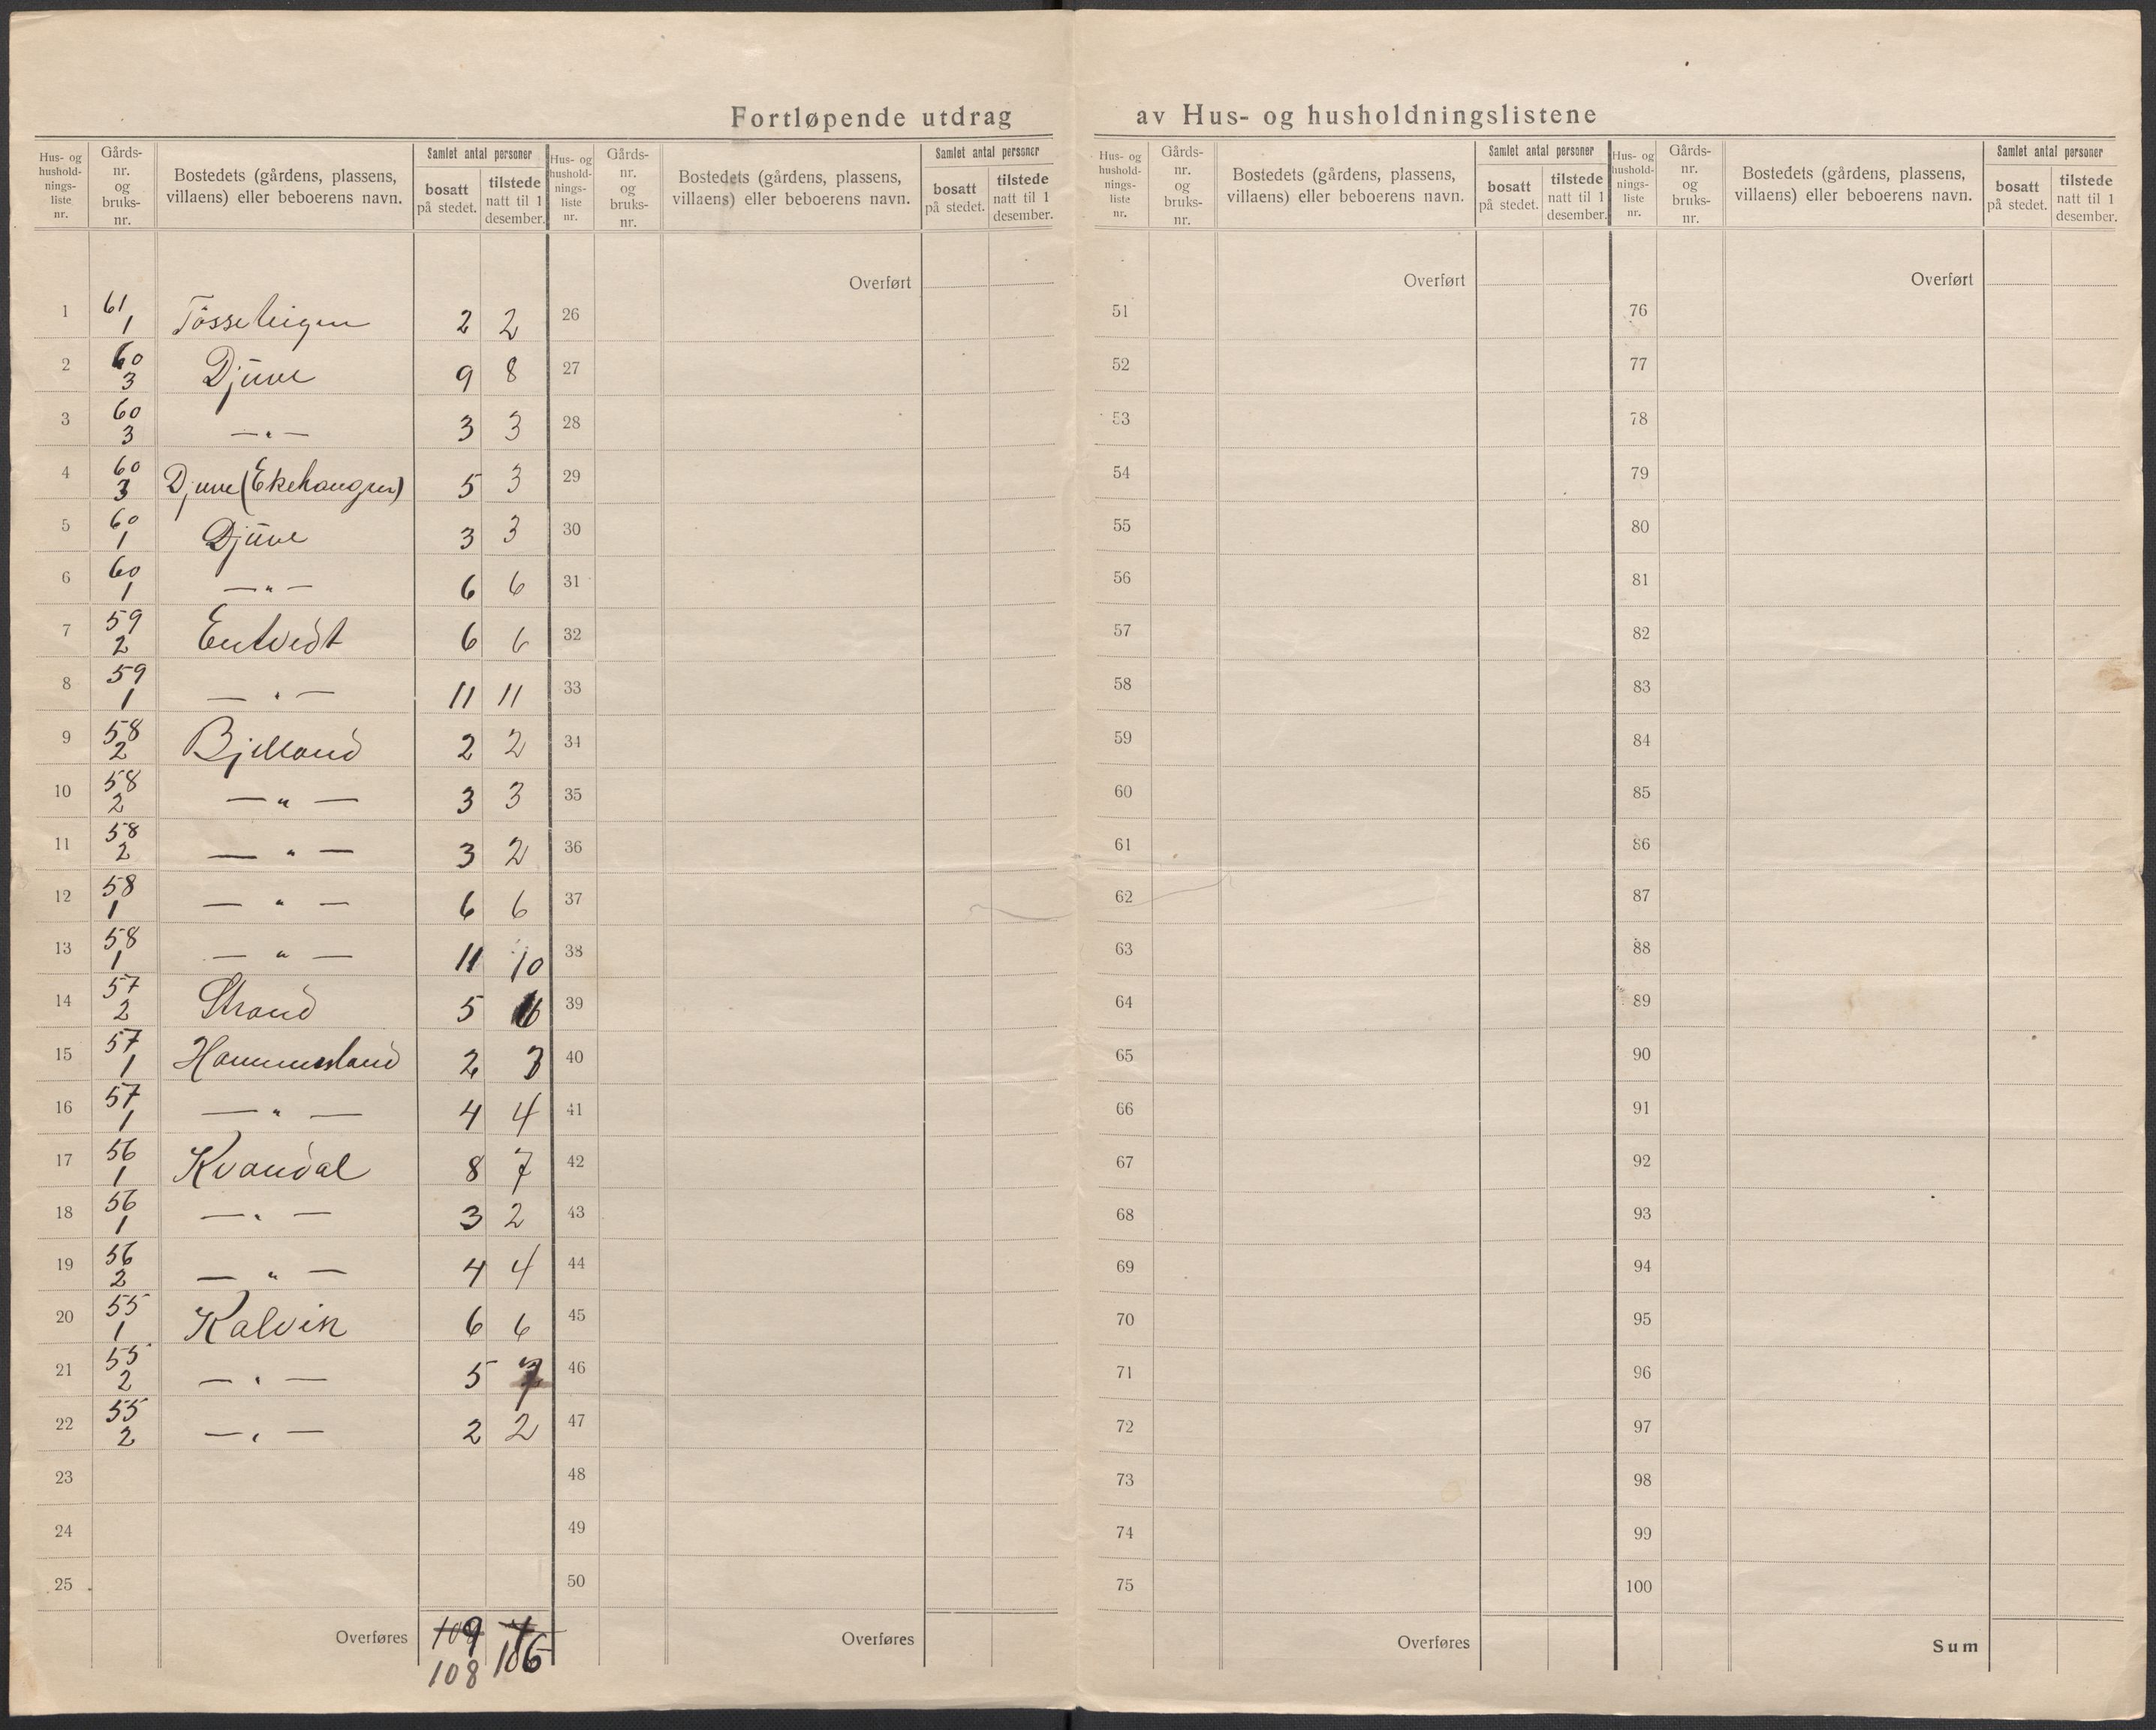 Fortløpende utdrag av Hus- og husholdningslistene
Hus- og hushold- nings- liste nr.
Gårds- nr. og bruks- nr.
Bostedets (gårdens, plassens, villaens) eller beboerens navn.
Samlet antal personer
bosatt på stedet.
tilstede natt til 1 desember.
Hus- og hushold- nings- liste nr.
Gårds- nr. og bruks- nr.
Bostedets (gårdens, plassens, villaens) eller beboerens navn.
Samlet antal personer
bosatt på stedet.
tilstede natt til 1 desember.
Hus- og hushold- nings- liste nr.
Gårds- nr. og bruks- nr.
Bostedets (gårdens, plassens, villaens) eller beboerens navn.
Samlet antal personer
bosatt på stedet.
tilstede natt til 1 desember.
Hus- og hushold- nings- liste nr.
Gårds- nr. og bruks- nr.
Bostedets (gårdens, plassens, villaens) eller beboerens navn.
Samlet antal personer
bosatt på stedet.
tilstede natt til 1 desember.
Overført Overført Overført
1 61 1 2 2 26 51 76
2 60 3 Djuve 9 8 27 52 77
3 60 3 —„— 3 3 28 53 78
4 60 3 Djuve (Ekehaugen) 5 3 29 54 79
5 60 1 Djuve 3 3 30 55 80
6 60 1 —„— 6 6 31 56 81
7 59 2 Entvedt 6 6 32 57 82
8 59 1 —„— 11 11 33 58 83
9 58 2 Bjelland 2 2 34 59 84
10 58 2 —„— 3 3 35 60 85
11 58 2 —„— 3 2 36 61 86
12 58 1 —„— 6 6 37 62 87
13 58 1 —„— 11 10 38 63 88
14 57 2 Strand 5 6 39 64 89
15 57 1 Hammersland 2 3 40 65 90
16 57 1 —„— 4 4 41 66 91
17 56 1 Kvandal 8 7 42 67 92
18 56 1 —„— 3 2 43 68 93
19 56 2 —„— 4 4 44 69 94
20 55 1 Kalvik 6 6 45 70 95
21 55 2 —„— 5 7 46 71 96
22 55 2 —„— 2 2 47 72 97
23 48 73 98
24 49 74 99
25 50 75 100
Overføres 109 Overføres Overføres Sum
108 106